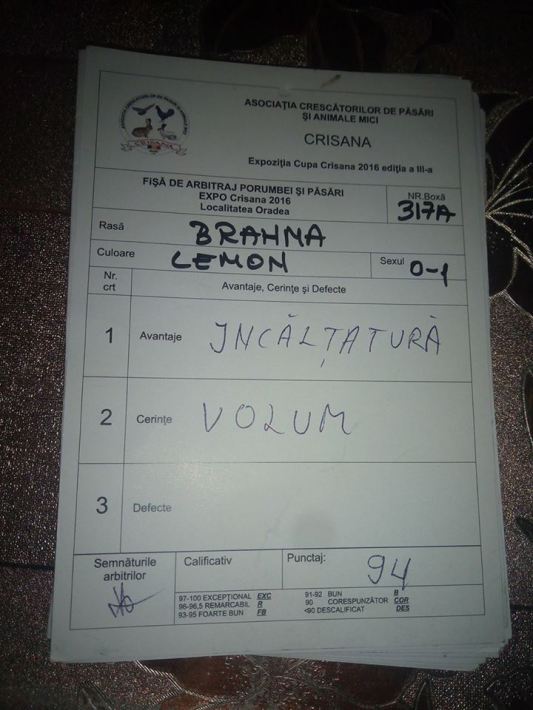 ASOCIAȚIA CRESCĂTORILOR DE PĂSĂRI
ȘI ANIMALE MICI
CRISANA
Expoziția Cupa Crisana 2016 ediția a III-a
FIȘĂ DE ARBITRAJ PORUMBEI ȘI PĂSĂRI
EXPO Crisana 2016
Localitatea Oradea
NR.Boxă
317A
Rasă BRAHMA
Culoare LEMON
Sexul 0-1
Nr.
crt
Avantaje, Cerințe și Defecte
1 Avantaje ÎNCĂLȚATURĂ
2 Cerințe VOLUM
3 Defecte
Semnăturile
arbitrilor
Calificativ
Punctaj: 94
97-100 EXCEPȚIONAL EXC
96-96,5 REMARCABIL R
93-95 FOARTE BUN FB
91-92 BUN B
90 CORESPUNZĂTOR COR
<90 DESCALIFICAT DES